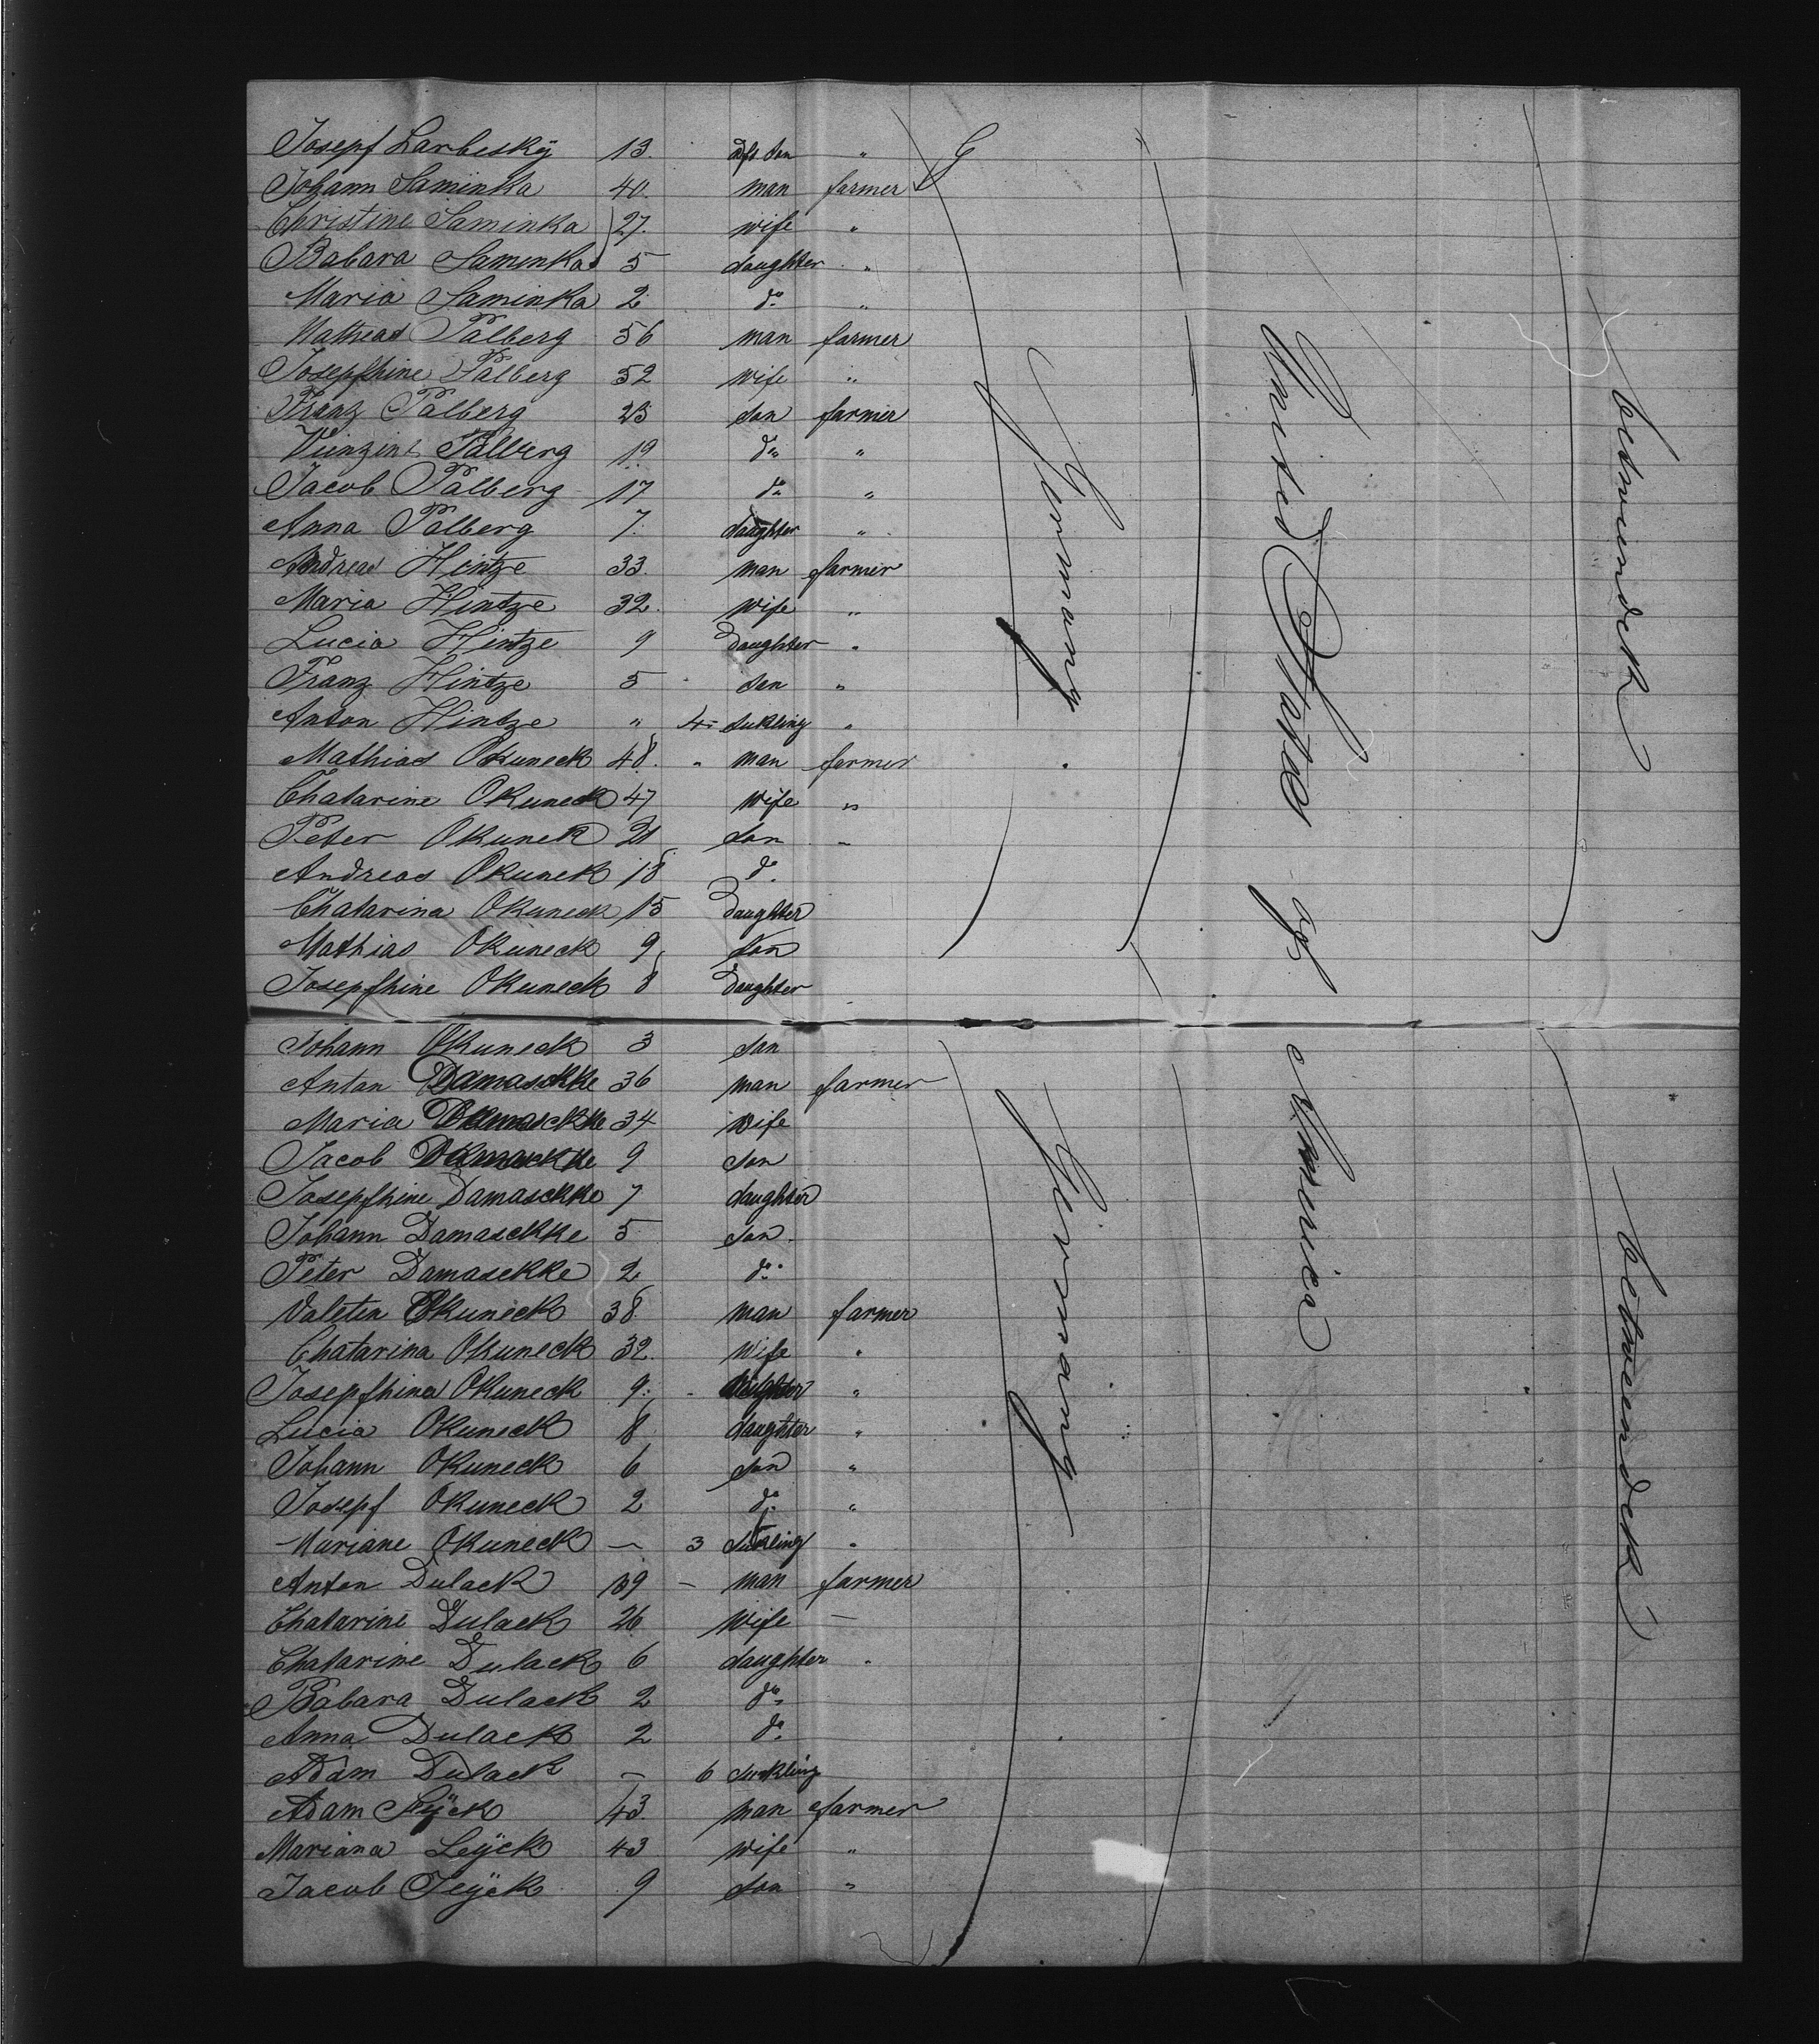 Josepf Larbesky 13. dft son "
Johann Saminka 40. man farmer
Christine Saminka 27. wife "
Babara Saminka 5 daughter "
Maria Saminka 2 do "
Mathias Palberg 56 man farmer
Josepfhine Palberg 52 wife "
Franz Palberg 23 son farmer
Palberg 19 do "
Jacob Palberg 17 do "
Anna Palberg 7. daughter "
Andreas Hintze 33. man farmer
Maria Hintze 32. wife "
Lucia Hintze 9 daughter "
Franz Hintze 5 son "
Anton Hintze " 4 sukling "
Mathias Okuneck 48. " man farmer
Chatarine Okuneck 47 wife "
Peter Okuneck 21 son "
Andreas Okuneck 18 do
Chatarina Okuneck 15 daughter
Mathias Okuneck 9 son
Josepfhine Okuneck 8 daughter
Johann Okuneck 3 son
Anton Damasckke 36 man farmer
Maria Damasckke 34 wife
Jacob Damasckke 9 son
Josepfhine Damasckke 7 daughter
Johann Damasckke 5 son
Peter Damasckke 2 do
Valetin Okuneck 38. man farmer
Chatarina Okuneck 32. wife "
Josepfhina Okuneck 9. daughter "
Lucia Okuneck 8 daughter "
Johann Okuneck 6 son "
Josepf Okuneck 2 do "
Mariane Okuneck — 3 sukling "
Anton Dulack 39 — man farmer
Chatarine Dulack 26 wife —
Chatarine Dulack 6 daughter "
Babara Dulack 2 do
Anna Dulack 2 do
Adam Dulack — 6 suckling
Adam Leyck 43 man farmer
Mariana Leyck 43 wife "
Jacob Leyck 9 son "
Germany
Germany
United States of America
betweendeck
betweendeck